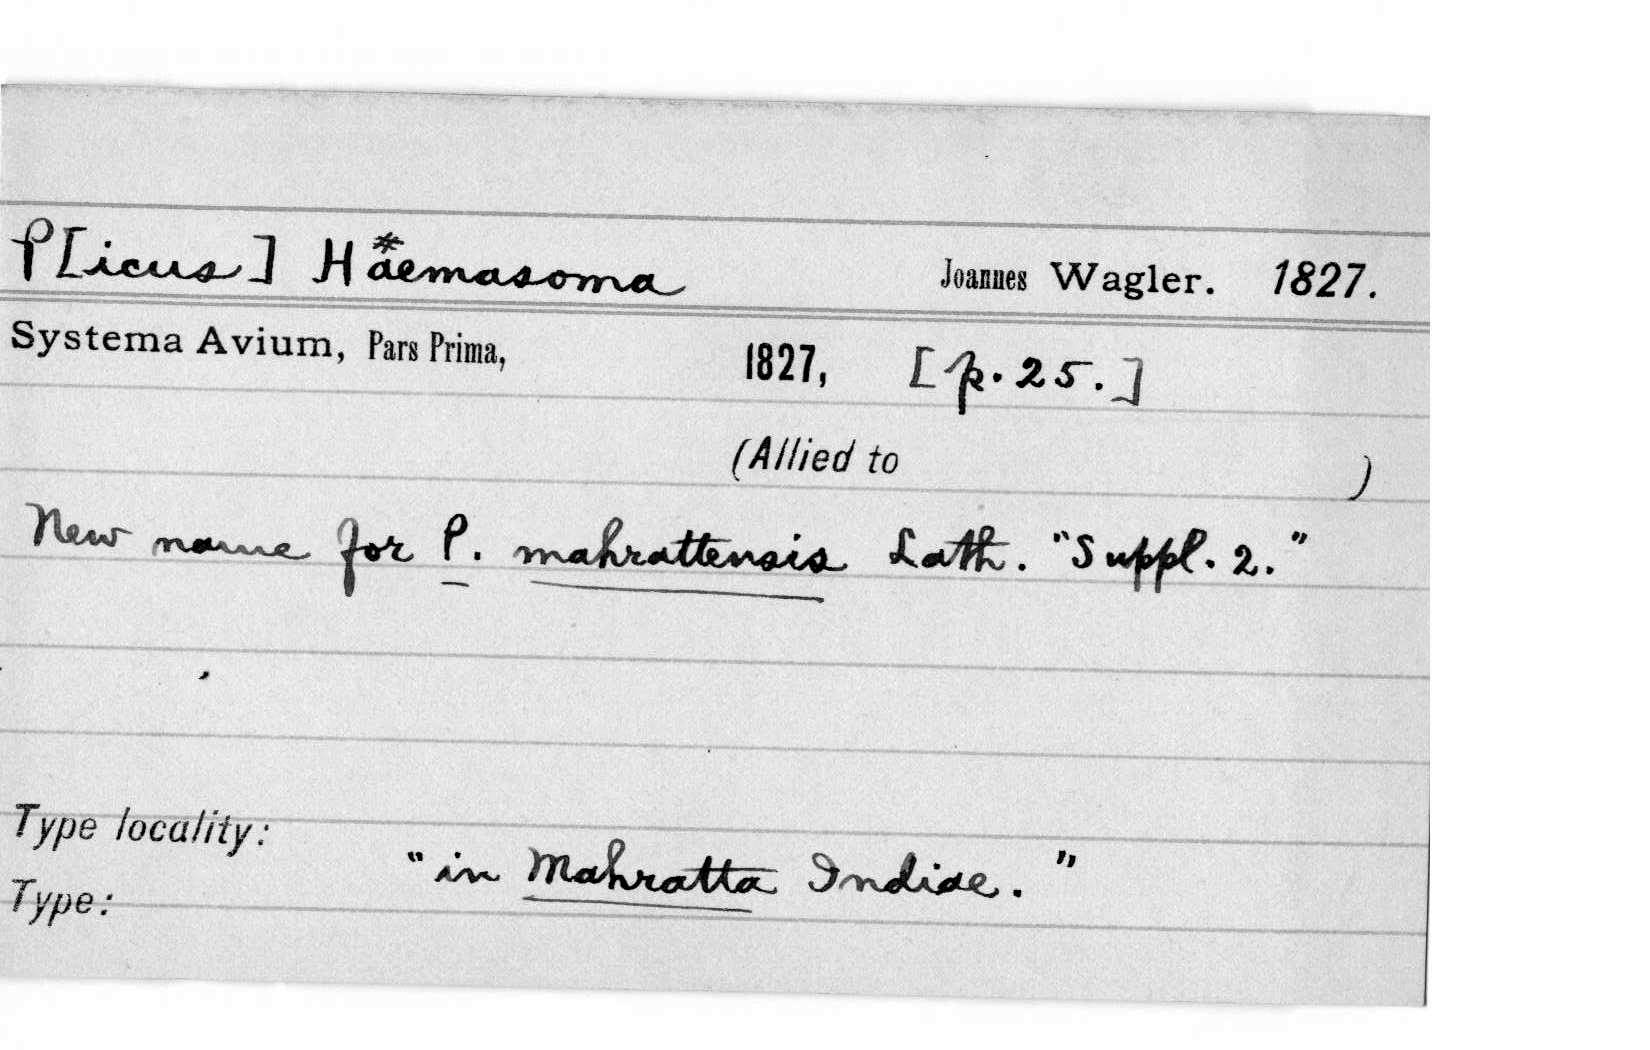 P[icus] Haemasoma Joannes Wagler. 1827.
Systema Avium, Pars Prima, 1827, [p. 25.]
(Allied to )
New name for P. mahrattensis Lath. "Suppl. 2."
Type locality:
"in Mahratta Indiae."
Type: